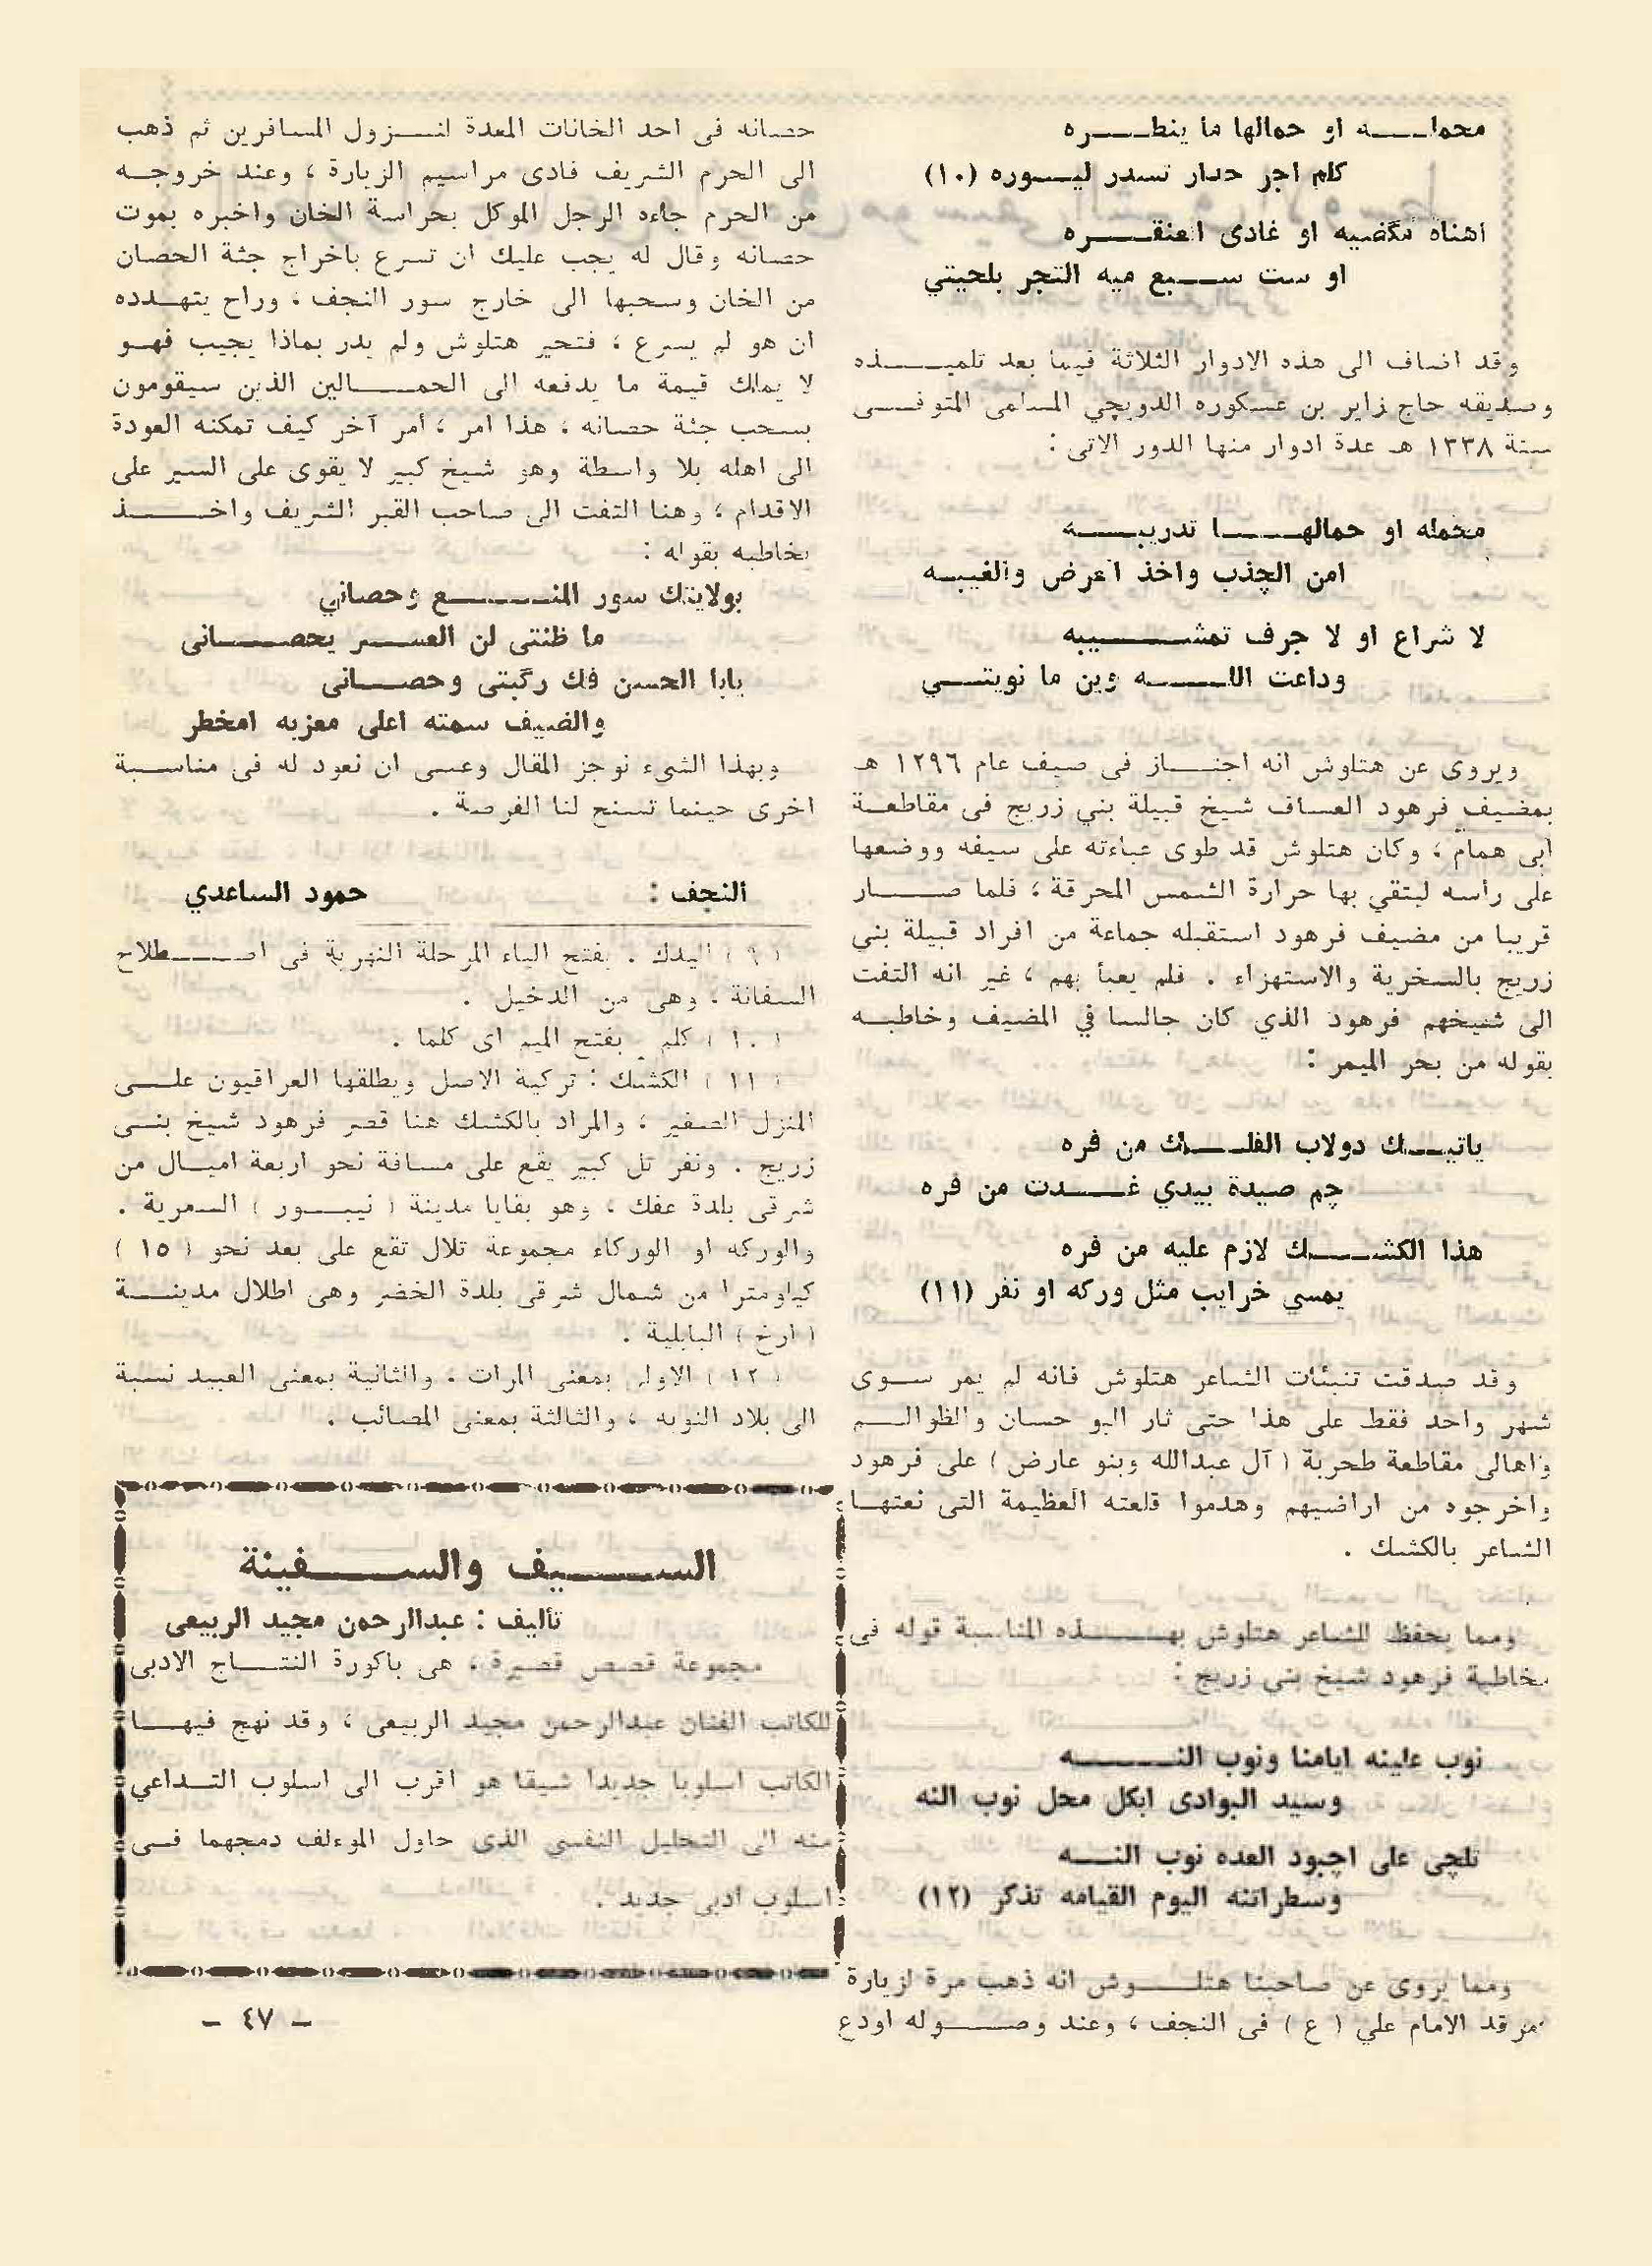 محملـه او حمالها ما ينطـره
كلم اجر حدار تسدر ليـوره (١٠)
اهناه نكضيه او غادى العنقـره
او ست سـبع ميه التجر بلحيتي
وقد اضاف الى هذه الادوار الثلاثة فيما بعد تلميـذه
وصديقه حاج زاير بن عسكوره الدويچي المسلمى المتوفـى
سنة ١٣٣٨ هـ عدة ادوار منها الدور الاتى :
محمله او حمالهـا تدريبـه
امن الچذب واخذ اعرض والغيبـه
لا شراع او لا جرف تمشـيبه
وداعت اللـه وين ما نويتـي
ويروى عن هتلوش انه اجتـاز فى صيف عام ١٢٩٦ هـ
بمضيف فرهود العساف شيخ قبيلة بني زريج فى مقاطعـة
أبى همام ، وكان هتلوش قد طوى عباءته على سيفه ووضعها
على رأسه ليتقي بها حرارة الشمس المحرقة ، فلما صـار
قريبا من مضيف فرهود استقبله جماعة من افراد قبيلة بني
زريج بالسخرية والاستهزاء . فلم يعبأ بهم ، غير انه التفت
الى شيخهم فرهود الذي كان جالسا في المضيف وخاطبـه
بقوله من بحر الميمر :
ياتيـك دولاب الفلـك من فره
چم صيدة بيدي غـدت من فره
هذا الكشـك لازم عليه من فره
يمسي خرايب مثل وركه او نفر (١١)
وقد صدقت تنبئات الشاعر هتلوش فانه لم يمر سـوى
شهر واحد فقط على هذا حتى ثار البو حسان والظوالـم
واهالى مقاطعة طحربة ( آل عبدالله وبنو عارض ) على فرهود
واخرجوه من اراضيهم وهدموا قلعته العظيمة التى نعتهـا
الشاعر بالكشك .
ومما يحفظ للشاعر هتلوش بهـذه المناسبة قوله فى
مخاطبة فرهود شيخ بني زريج :
نوب علينه ايامنا ونوب النـه
وسيد البوادى ابكل محل نوب النه
تلچى على اچبود العده نوب النـه
وسطراتنه اليوم القيامه تذكر (١٢)
ومما يروى عن صاحبنا هتلـوش انه ذهب مرة لزيارة
مرقد الامام علي ( ع ) فى النجف ، وعند وصـوله اودع
حصانه فى احد الخانات المعدة لنـزول المسافرين ثم ذهب
الى الحرم الشريف فادى مراسيم الزيارة ، وعند خروجـه
من الحرم جاءه الرجل الموكل بحراسة الخان واخبره بموت
حصانه وقال له يجب عليك ان تسرع باخراج جثة الحصان
من الخان وسحبها الى خارج سور النجف ، وراح يتهـدده
ان هو لم يسرع ، فتحير هتلوش ولم يدر بماذا يجيب فهـو
لا يملك قيمة ما يدفعه الى الحمـالين الذين سيقومون
بسحب جثة حصانه ، هذا امر ، أمر آخر كيف تمكنه العودة
الى اهله بلا واسطة وهو شيخ كبير لا يقوى على السير على
الاقدام ، وهنا التفت الى صاحب القبر الشريف واخـذ
يخاطبه بقوله :
بولايتك سور المنـع وحصاني
ما ظنتى لن العسـر يحصـانى
يابا الحسن فك رگبتى وحصـانى
والضيف سمته اعلى معزبه امخطر
وبهذا الشىء نوجز المقال وعسى ان نعود له فى مناسـبة
اخرى حينما تسنح لنا الفرصة .
النجف : حمود الساعدي
( ٩ ) اليدك . بفتح الياء المرحلة النهرية فى اصـطلاح
السفانة . وهى من الدخيل .
( ١٠ ) كلم . بفتح الميم اى كلما .
( ١١ ) الكشك : تركية الاصل ويطلقها العراقيون علـى
المنزل الصغير ، والمراد بالكشك هنا قصر فرهود شيخ بنـى
زريج . ونفر تل كبير يقع على مسافة نحو اربعة اميـال من
شرقى بلدة عفك ، وهو بقايا مدينة ( نيبـور ) السمرية .
والوركه او الوركاء مجموعة تلال تقع على بعد نحو ( ١٥ )
كيلومترا من شمال شرقى بلدة الخضر وهى اطلال مدينـة
( ارخ ) البابلية .
( ١٢ ) الاولى بمعنى المرات ، والثانية بمعنى العبيد نسبة
الى بلاد النوبه ، والثالثة بمعنى المصائب .
السـيف والسـفينة
تأليف : عبدالرحمن مجيد الربيعى
مجموعة قصص قصيرة ، هى باكورة النتـاج الادبى
للكاتب الفنان عبدالرحمن مجيد الربيعى ، وقد نهج فيهـا
الكاتب اسلوبا جديدا شيقا هو اقرب الى اسلوب التـداعي
منه الى التحليل النفسي الذى حاول الموءلف دمجهما فـى
اسلوب أدبى جديد .
– ٤٧ –